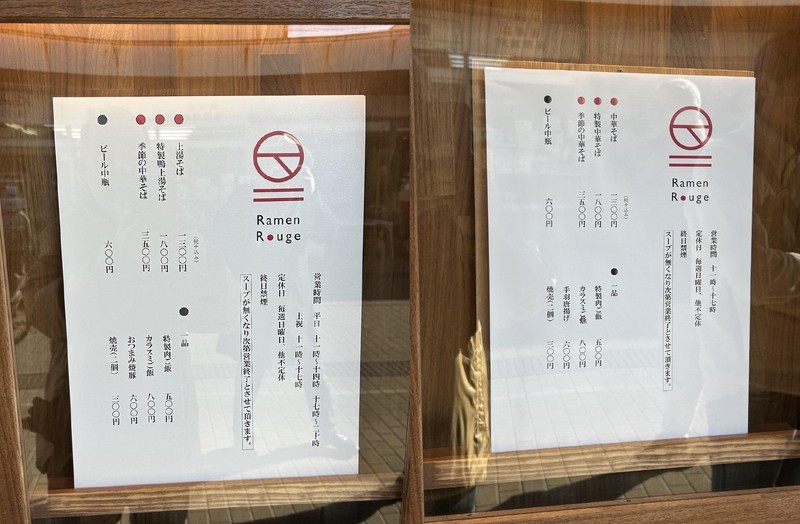 Ramen
Rouge
営業時間 平日 十一時～十四時 十七時～二十時
土祝 十一時～十七時
定休日 毎週日曜日、他不定休
終日禁煙
スープが無くなり次第営業終了とさせて頂きます。
(税サ込み)
上湯そば 一三〇〇円
特製鴨上湯そば 一八〇〇円
季節の中華そば 三五〇〇円
ビール中瓶 六〇〇円
一品
特製肉ご飯 五〇〇円
カラスミご飯 八〇〇円
おつまみ焼豚 六〇〇円
焼売(二個) 三〇〇円
Ramen
Rouge
営業時間 十一時～十七時
定休日 毎週日曜日、他不定休
終日禁煙
スープが無くなり次第営業終了とさせて頂きます。
(税サ込み)
中華そば 一三〇〇円
特製中華そば 一八〇〇円
季節の中華そば 三五〇〇円
ビール中瓶 六〇〇円
一品
特製肉ご飯 五〇〇円
カラスミご飯 八〇〇円
手羽唐揚げ 六〇〇円
焼売(二個) 三〇〇円